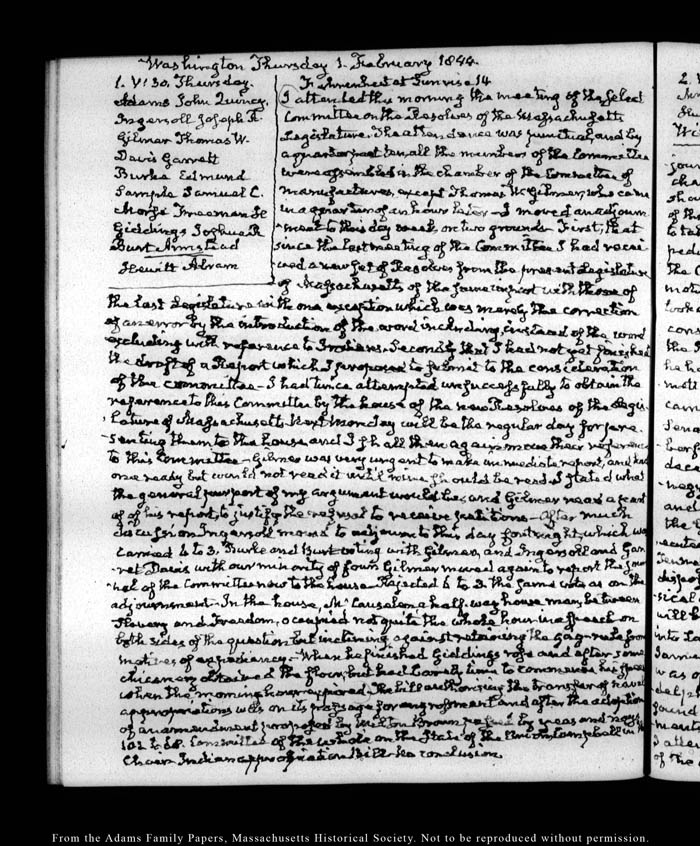 Washington Thursday 1. February 1844.
1. V: 30. Thursday.
Adams John Quincy.
Ingersoll Joseph R.
Gilmer Thomas W.
Davis Garrett
Burke Edmund
Sample Samuel C.
Morse Freeman H
Giddings Joshua R
Burt Armistead
Hewitt Abram
Fahrenheit at Sunrise 14
I attended this morning the meeting of the Select
Committee on the Resolves of the Massachusetts
Legislature. The attendance was punctual, and by
a quarter past ten all the members of the Committee
were assembled in the chamber of the Committee of
manufactures, except Thomas W. Gilmer, who came
in a quarter of an hour later – I moved an adjourn-
ment to this day week on two grounds. First, that
since the last meeting of the Committee I had recei-
ved a new set of Resolves from the present Legislature
of Massachusetts of the same import with those of
the last Legislature with one exception which was merely the correction
of an error by the introduction of the word including, instead of the word
excluding with reference to Indians. Secondly that I had not yet finished
the draft of a Report which I proposed to submit to the consideration
of the committee – I had twice attempted unsuccessfully to obtain the
reference to this Committee by the house of the new Resolves of the Legis-
lature of Massachusetts. Next Monday will be the regular day for pre-
senting them to the house and I shall then again move their reference
to this Committee – Gilmer was very urgent to make an immediate report, and had
one ready but would not read it until mine should be read. I stated what
the general purport of my argument would be, and Gilmer read a part
of his report, to justify the refusal to receive petitions – After much
discussion Ingersoll moved to adjourn to this day fortnight, which was
carried 6 to 3. Burke and Burt voting with Gilmer, and Ingersoll and Gar-
ret Davis with our minority of four. Gilmer moved again to report the jour-
nal of the Committee now to the house. Rejected 6 to 3 the same votes as on the
adjournment. In the house, McCauslen a half-way house man, between
Slavery and Freedom, occupied not quite the whole hour in a speech on
both sides of the question but inclining against retaining the gag-rule from
motives of expediency – When he finished Giddings rose and after some
chicanery obtained the floor, but had barely time to commence his speech
when the morning hour expired. The bill authorising the transfer of naval
appropriations was on its passage for engrossment and after the adoption
of an amendment proposed by Milton Brown passed by yeas and nays
102 to 68. Committee of the whole on the State of the Union Campbell in the
Chair Indian appropriation Bill. No conclusion
From the Adams Family Papers, Massachusetts Historical Society. Not to be reproduced without permission.